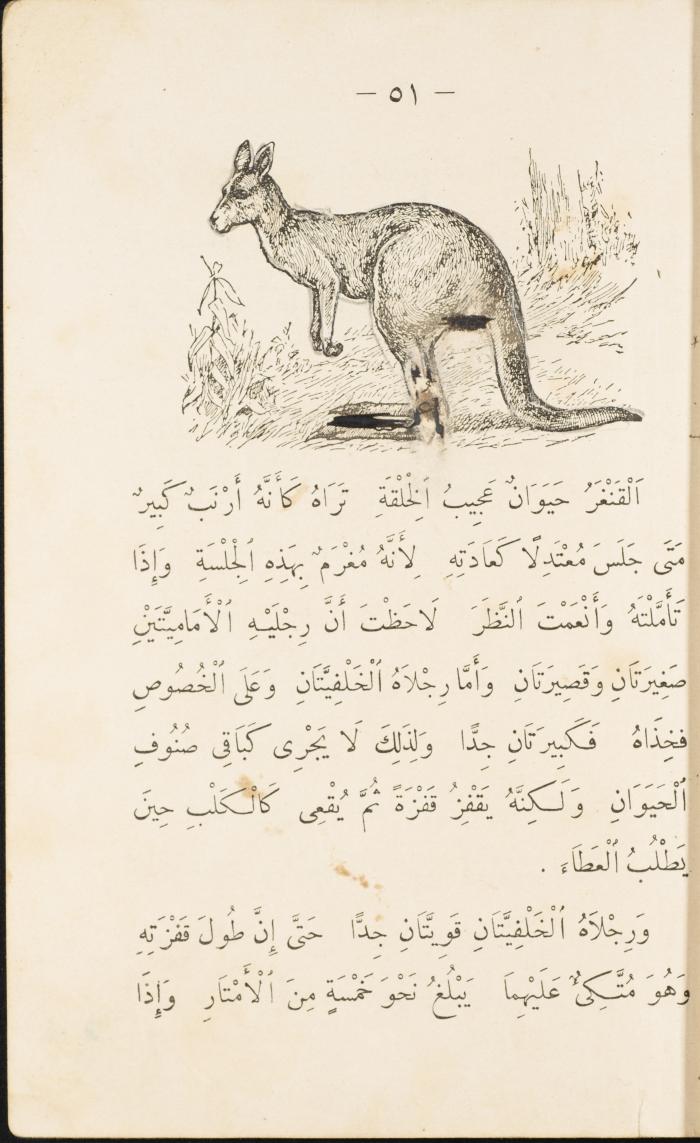 — ٥١ —
اَلْقَنْغَرُ حَيَوَانٌ عَجِيبُ اَلْخِلْقَةِ تَرَاهُ كَأَنَّهُ أَرْنَبٌ كَبِيرٌ
مَتَى جَلَسَ مُعْتَدِلًا كَعَادَتِهِ لِأَنَّهُ مُغْرَمٌ بِهَذِهِ اَلْجِلْسَةِ وَإِذَا
تَأَمَّلْتَهُ وَأَنْعَمْتَ اَلنَّظَرَ لَاحَظْتَ أَنَّ رِجْلَيْهِ اَلْأَمَامِيَّتَيْنِ
صَغِيرَتَانِ وَقَصِيرَتَانِ وَأَمَّا رِجْلَاهُ اَلْخَلْفِيَّتَانِ وَعَلَى اَلْخُصُوصِ
فَخِذَاهُ فَكَبِيرَتَانِ جِدًّا وَلِذَلِكَ لَا يَجْرِى كَبَاقِى صُنُوفِ
اَلْحَيَوَانِ وَلَكِنَّهُ يَقْفِزُ قَفْزَةً ثُمَّ يُقْعِى كَالْكَلْبِ حِينَ
يَطْلُبُ اَلْعَطَاءَ .
وَرِجْلَاهُ اَلْخَلْفِيَّتَانِ قَوِيَّتَانِ جِدًّا حَتَّى إِنَّ طُولَ قَفْزَتِهِ
وَهُوَ مُتَّكِئٌ عَلَيْهِمَا يَبْلُغُ نَحْوَ خَمْسَةٍ مِنَ اَلْأَمْتَارِ وَإِذَا